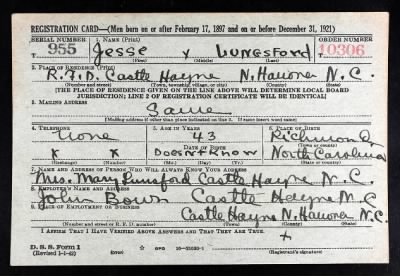 REGISTRATION CARD—(Men born on or after February 17, 1897 and on or before December 31, 1921)
SERIAL NUMBER 1. NAME (Print) ORDER NUMBER
955 Jesse x LUNGSFORD 10306
(First) (Middle) (Last)
2. PLACE OF RESIDENCE (Print)
R.F.D. Castle Hayne N. Hanover N.C.
(Number and street) (Town, township, village, or city) (County) (State)
[THE PLACE OF RESIDENCE GIVEN ON THE LINE ABOVE WILL DETERMINE LOCAL BOARD
JURISDICTION; LINE 2 OF REGISTRATION CERTIFICATE WILL BE IDENTICAL]
3. MAILING ADDRESS
Same
(Mailing address if other than place indicated on line 2. If same insert word same)
4. TELEPHONE 5. AGE IN YEARS 6. PLACE OF BIRTH
none 43 Richmond Co.
DATE OF BIRTH (Town or county)
x x Doesntknow North Carolina
(Exchange) (Number) (Mo.) (Day) (Yr.) (State or country)
7. NAME AND ADDRESS OF PERSON WHO WILL ALWAYS KNOW YOUR ADDRESS
Mrs. Mary Lunsford Castle Hayne N.C.
8. EMPLOYER'S NAME AND ADDRESS
John Bown Castle Hayne N.C.
9. PLACE OF EMPLOYMENT OR BUSINESS
Castle Hayne N. Hanover N.C.
(Number and street or R. F. D. number) (Town) (County) (State)
I AFFIRM THAT I HAVE VERIFIED ABOVE ANSWERS AND THAT THEY ARE TRUE.
D. S. S. Form 1 ☆ GPO 16—21630-1 x
(Revised 1-1-42) (Registrant's signature)